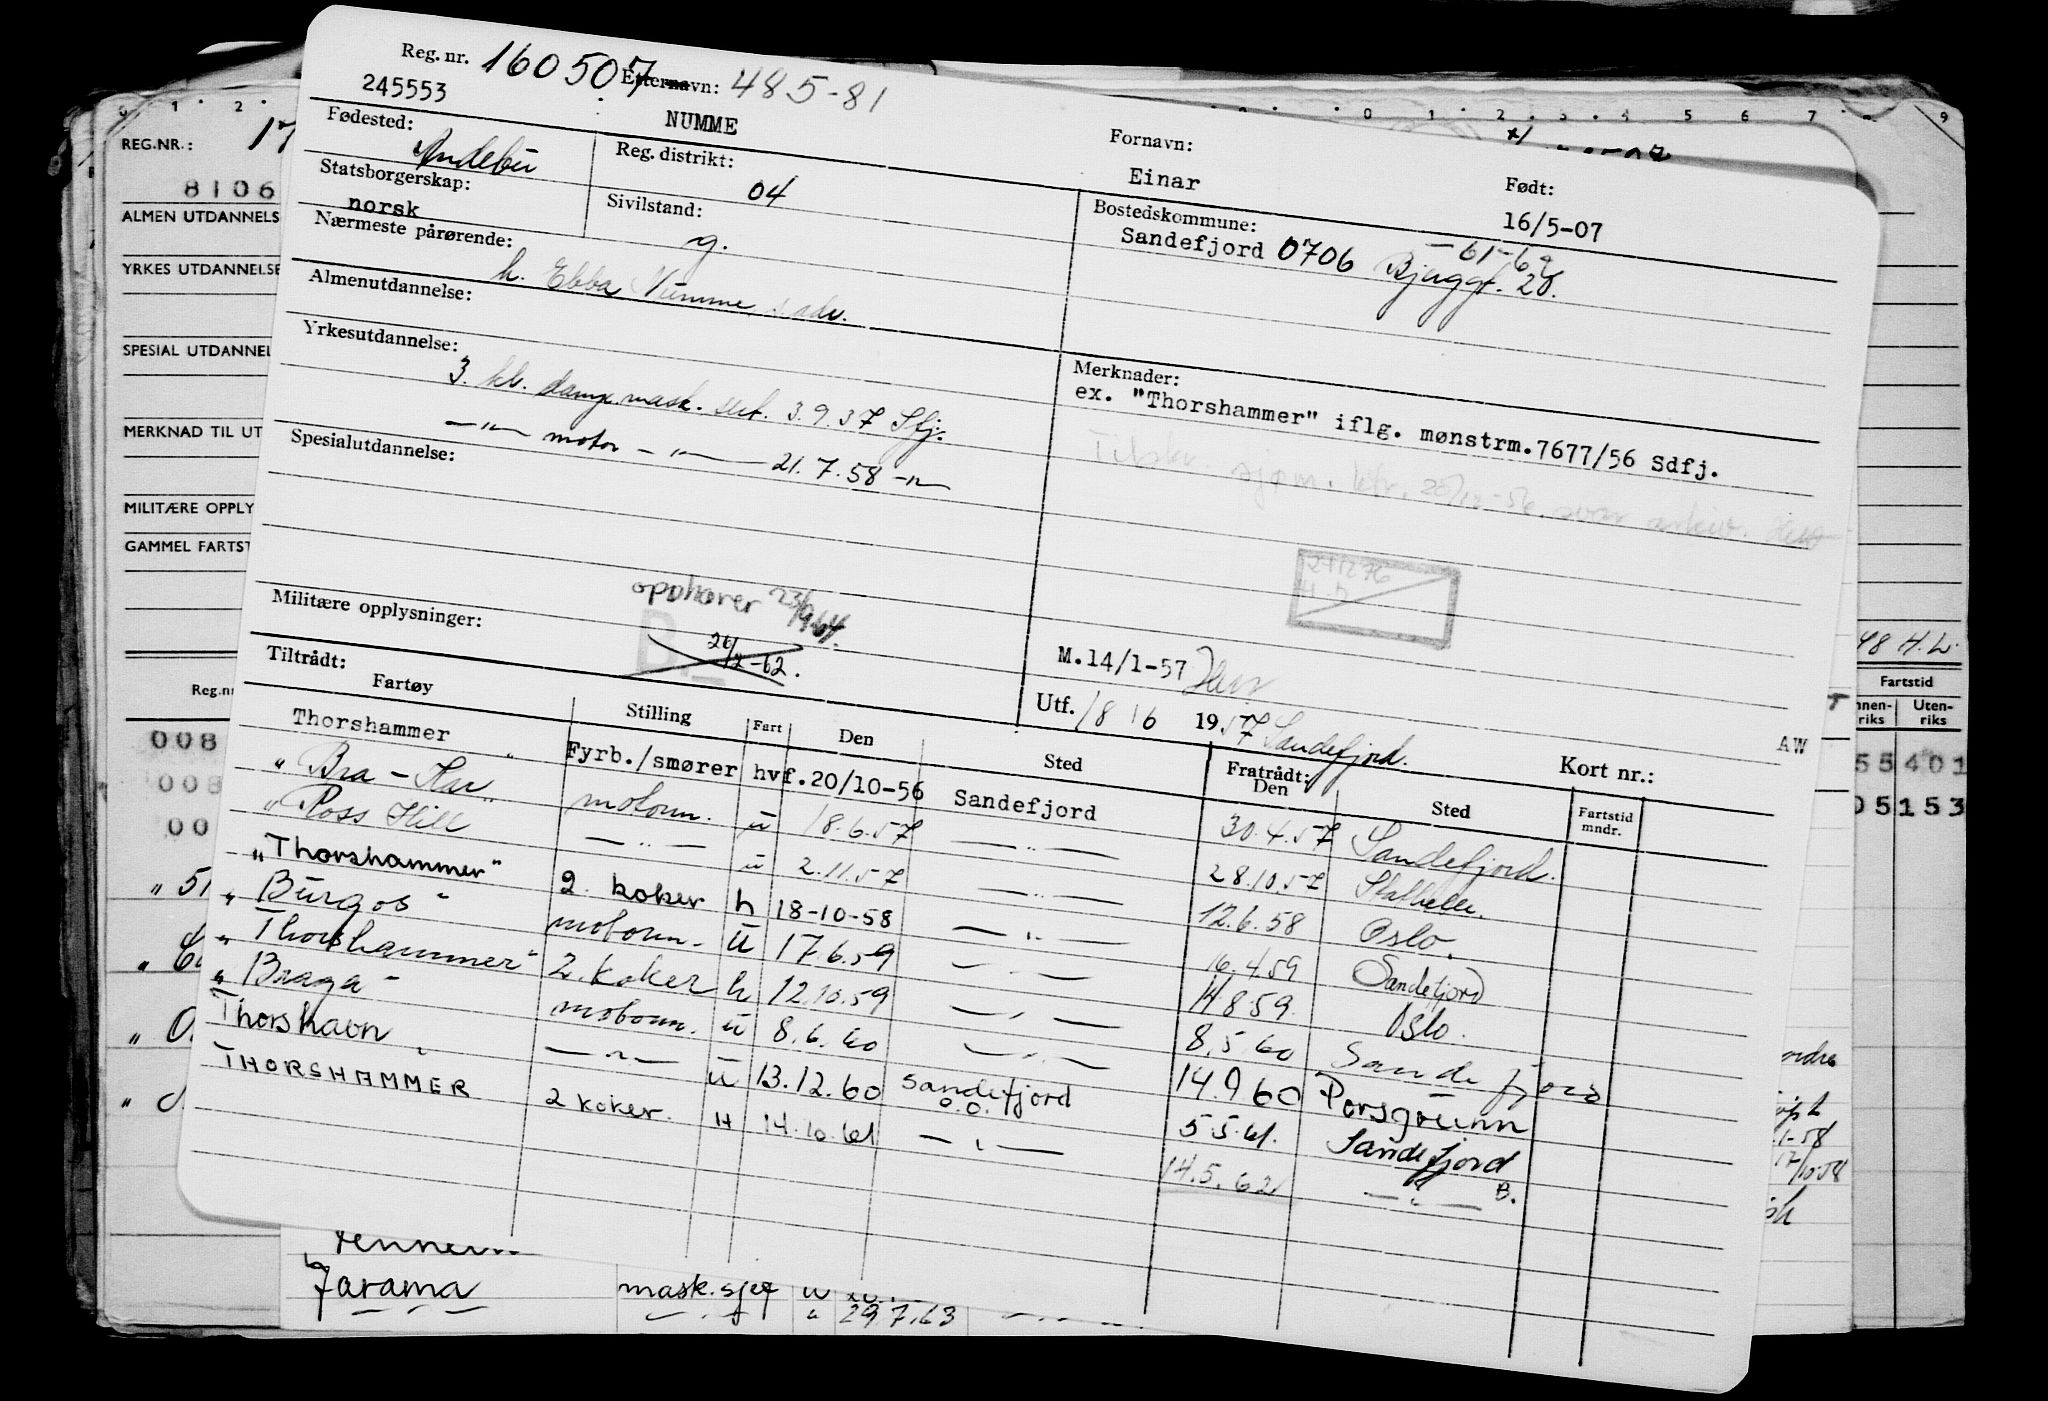 Reg. nr. 160507 Etternavn: 485-81
245553 NUMME Fornavn: Einar Født: 16/5-07
Fødested: Andebu Reg. distrikt: 04 Bostedskommune: Sandefjord 0706 -61-62
Bjerggt. 28.
Statsborgerskap: norsk Sivilstand: g.
Nærmeste pårørende: h. Ebba Numme s. adr.
Almenutdannelse:
Yrkesutdannelse: 3. kl. damp.mask. sert. 3.9 37 Sfj.
—"— motor —"— 21.7.58 —"—
Spesialutdannelse:
Merknader:
ex. "Thorshammer" iflg. mønstrm.7677/56 Sdfj.
Militære opplysninger: opphører 23/9-64.
M.14/1-57
Utf. 18/6 1957 Sandefjord. AW
Tiltrådt: Fratrådt: Kort nr.:
Fartøy Stilling Fart Den Sted Den Sted Fartstid mndr.
Thorshammer Fyrb./smører hvf. 20/10-56 Sandefjord 30.4.57 Sandefjord.
" Bra-Kar " motorm. u 18.6.57 —"— 28.10.57 Stathelle.
" Ross Hill —"— u 2.11.57 —"— 12.6.58 Oslo.
"Thorshammer" 2. koker h 18-10-58 —"— 16.4.59 Sandefjord
" Burgos " motorm. u 17.6.59 —"— 14.8.59 Oslo.
" Thorshammer " 2. koker h 12.10.59 —"— 8.5 60 Sandefjord
" Braga " motorm. u 8.6.60 —"— 14.9 60 Porsgrunn
Thorshavn —"— u 13.12.60 Sandefjord o.o. 5.5.61. Sandefjord
THORSHAMMER 2 koker. H 14.10.61 —"— 14.5.62 —"— B.
REG.NR.: 17
8106
ALMEN UTDANNELS
YRKES UTDANNELSE
SPESIAL UTDANNEL
MERKNAD TIL UT
MILITÆRE OPPLY
GAMMEL FARTST
Reg.nr
008
008
00
" 51
48 H.L.
Fartstid
nnen-riks Uten-riks
55401
05153
Jarama mask.sjef u
—"— " 29.7.63